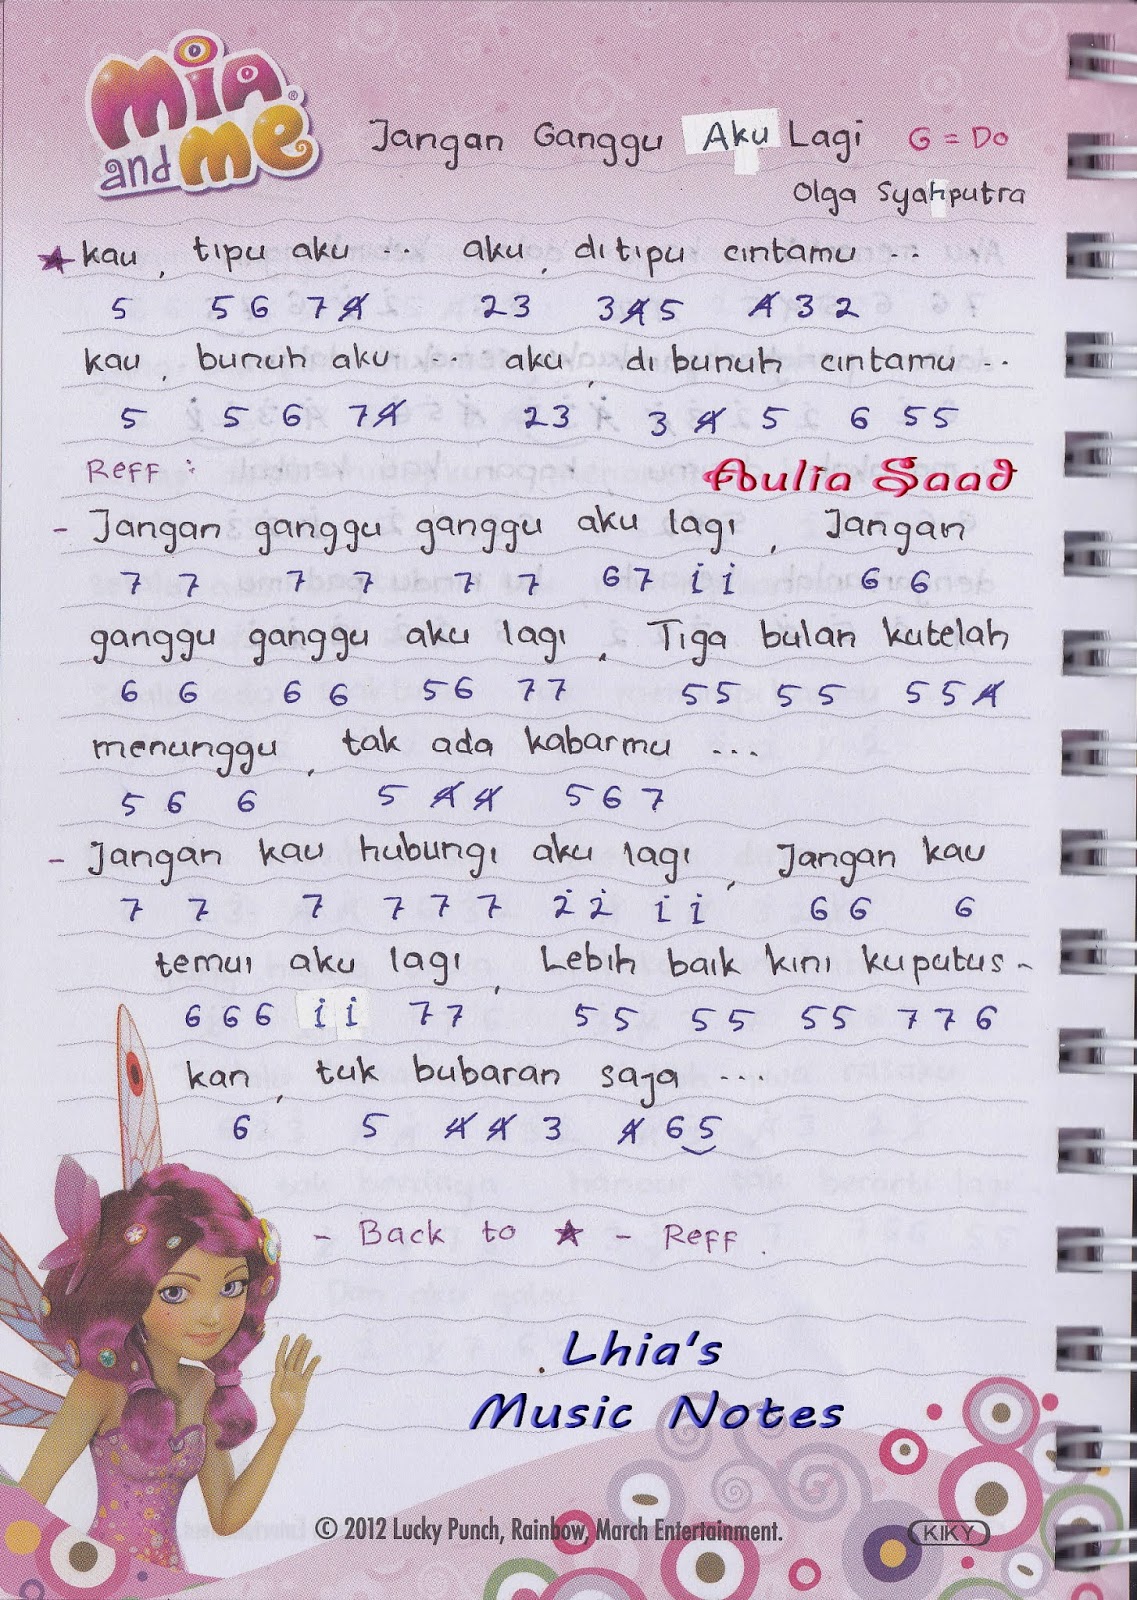 Mia
and me®
Jangan Ganggu Aku Lagi G = Do
Olga Syahputra
★ kau, tipu aku ... aku, ditipu cintamu ...
5 5 6 7 4̸ 2 3 3 4̸ 5 4̸ 3 2
kau, bunuh aku ... aku, dibunuh cintamu ...
5 5 6 7 4̸ 2 3 3 4̸ 5 6 5 5
Reff :
Aulia Saad
- Jangan ganggu ganggu aku lagi, Jangan
7 7 7 7 7 7 6 7 i i 6 6
ganggu ganggu aku lagi, Tiga bulan kutelah
6 6 6 6 5 6 7 7 5 5 5 5 5 5 4̸
menunggu, tak ada kabarmu ...
5 6 6 5 4̸ 4̸ 5 6 7
- Jangan kau hubungi aku lagi, Jangan kau
7 7 7 7 7 7 2̇ 2̇ i i 6 6 6
temui aku lagi, Lebih baik kini kuputus-
6 6 6 i i 7 7 5 5 5 5 5 5 7 7 6
kan, tuk bubaran saja ...
6 5 4̸ 4̸ 3 4̸ 6 5
- Back to ★ - Reff.
Lhia's
Music Notes
© 2012 Lucky Punch, Rainbow, March Entertainment.
KIKY